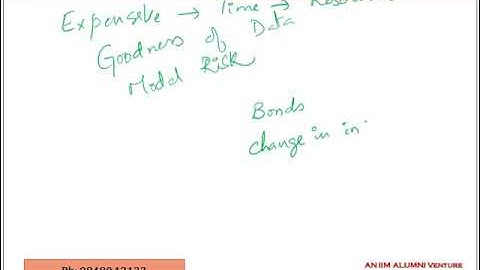 Expensive → Time →
Goodness of Data
Model Risk
Bonds
change in in
AN IIM ALUMNI VENTURE